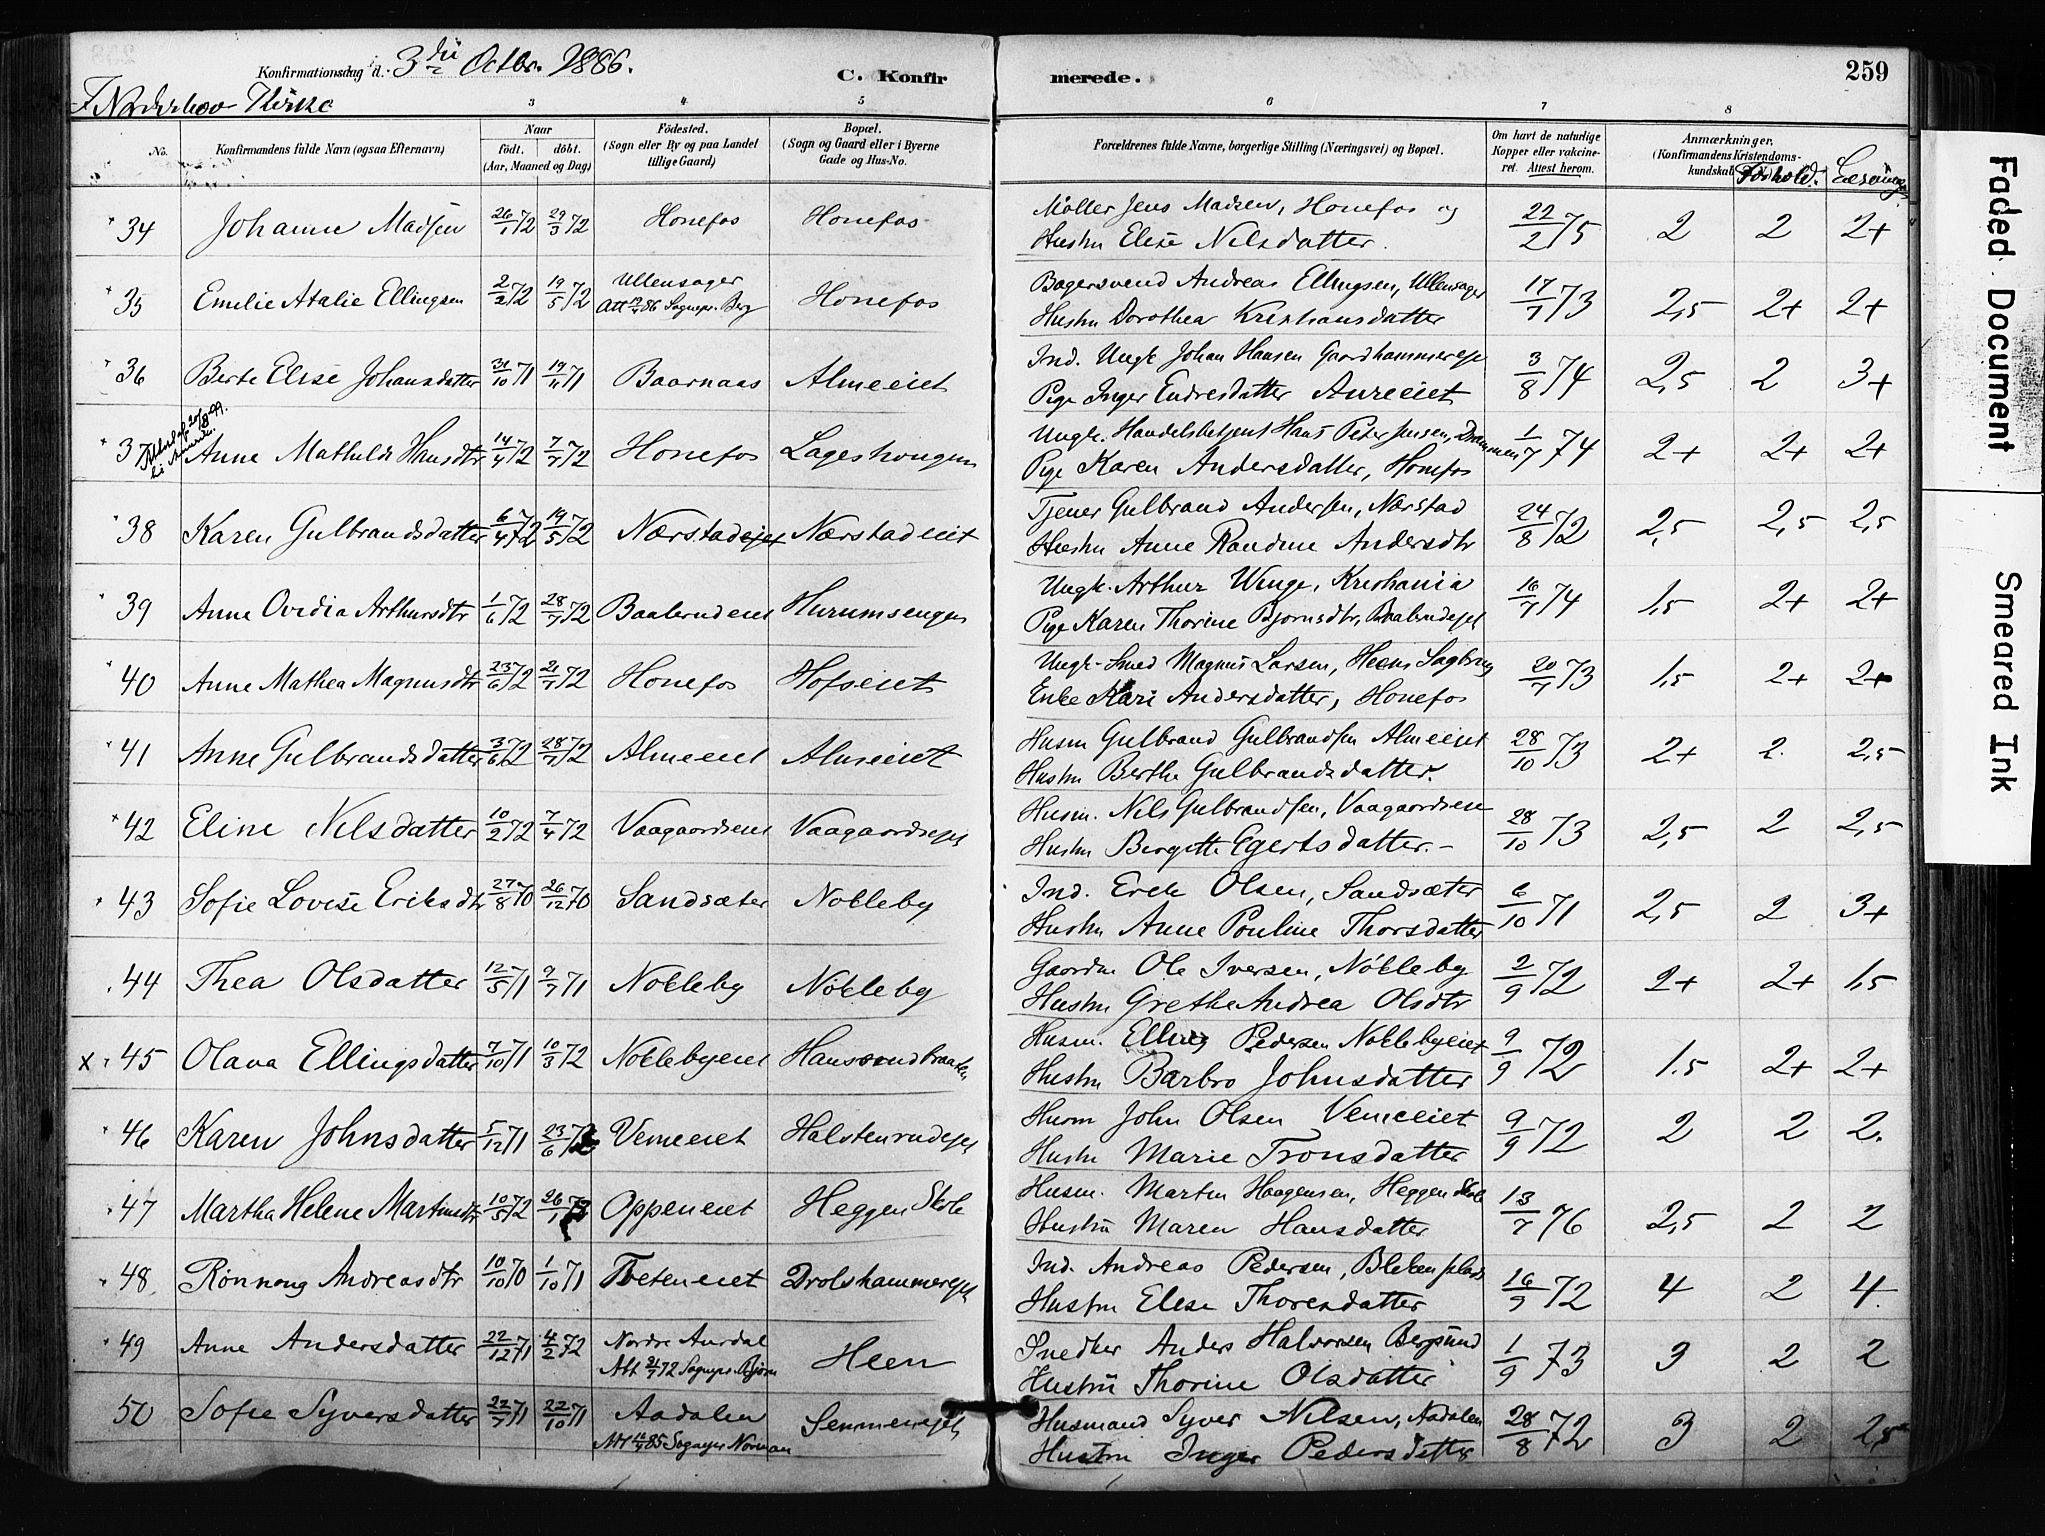 259
Konfirmationsdag d. 3die Octbr. 1886. C. Konfirmerede.
I Norderhov Kirke
3 4 5 6 7 8
No. Konfirmandens fulde Navn (ogsaa Efternavn) Naar født. døbt. (Aar, Maaned og Dag) Fødested. (Sogn eller By og paa Landet tillige Gaard) Bopæl. (Sogn og Gaard eller i Byerne Gade og Hus-No. Forældrenes fulde Navne, borgerlige Stilling (Næringsvei) og Bopæl. Om havt de naturlige Kopper eller vakcineret. Attest herom. Anmærkninger. (Konfirmandens Kristendomskundskab Forhold. Læsning
34 Johanne Madsen 26/1 72 29/3 72 Honefos Honefos Møller Jens Madsen, Honefos og 22/2 75 2 2 2+
Hustru Elise Nilsdatter.
35 Emilie Atalie Ellingsen 2/2 72 19/5 72 Ullensager Honefos Bagersvend Andreas Ellingsen, Ullensager 17/7 73 2,5 2+ 2+
Att 86 Sognepr. Berg Hustru Dorothea Kristiansdatter
36 Berte Elise Johansdatter 31/10 71 19/11 71 Baarnaas Almeeiet Ind. Ungk Johan Hansen Gaardhammereje 3/8 74 2,5 2 3+
Pige Inger Endresdatter Aureeiet
37 Anne Mathilde Hansdtr 14/4 72 7/7 72 Honefos Lageshougen Ungk. Handelsbetjent Hans Peter Jensen, Drammen 1/7 74 2+ 2+ 2+
Pige Karen Andersdatter, Honefos
38 Karen Gulbrandsdatter 6/4 72 19/5 72 Nærstadejet Nærstadeiet Tjener Gulbrand Andersen, Nærstad 24/8 72 2,5 2,5 2,5
Hustru Anne Randine Andersdtr
39 Anne Ovidia Arthursdtr 1/6 72 28/7 72 Baaberudeiet Hurumsengen Ungk. Arthur Winge, Kristiania 16/7 74 1,5 2+ 2+
Pige Karen Thorine Bjornsdtr, Baaberudejet
40 Anne Mathea Magnusdtr 23/6 72 21/7 72 Honefos Hofseiet Ungk. Smed Magnus Larsen, Heens Sagbrug 20/7 73 1,5 2+ 2+
Enke Kari Andersdatter, Honefos
41 Anne Gulbrandsdatter 3/6 72 28/7 72 Almeeiet Almeeiet Husm Gulbrand Gulbrandsen Almeeiet 28/10 73 2+ 2. 2,5
Hustru Berthe Gulbrandsdatter.
42 Eline Nilsdatter 10/2 72 7/4 72 Vaagaardseiet Vaagaardsejet Husm. Nils Gulbrandsen, Vaagaardseie 28/10 73 2,5 2 2,5
Hustru Bergitte Egertsdatter.-
43 Sofie Lovise Eriksdtr 27/8 70 26/12 70 Sandsæter Nokleby Ind. Erik Olsen, Sandsæter 6/10 71 2,5 2 3+
Hustru Anne Pouline Thorsdatter
44 Thea Olsdatter 12/5 71 9/7 71 Nokleby Nökleby Gaardm Ole Iversen, Nökleby 2/9 72 2+ 2+ 1,5
Hustru Grethe Andrea Olsdtr
x 45 Olava Ellingsdatter 7/10 71 10/3 72 Noklebyeiet Hansrudbraaten Husm. Elling Pedersen Noklebyeiet 9/9 72 1.5 2+ 2+
Hustru Barbro Johnsdatter
46 Karen Johnsdatter 5/12 71 23/6 72 Vemeeiet Halstenrudejet Husm John Olsen Vemeeiet 9/9 72 2 2 2.
Hustru Marie Tronsdatter
47 Martha Helene Martinsdtr 10/5 72 26/1 73 Oppeneiet Heggen Skole Husm. Martin Haagensen, Heggen Skole 13/7 76 2,5 2 2
Hustru Maren Hansdatter
48. Rönnaug Andreasdtr 10/10 70 1/10 71 Tveteneiet Drolshammerejet Ind. Andreas Pedersen, Blekenplads 16/9 72 4 2 4.
Hustru Elise Thoresdatter
49 Anne Andersdatter 22/12 71 4/2 72 Nordre Aurdal Heen Snedker Anders Halvorsen Bergsund 1/9 73 3 2 2
Att 21/7 72 Sognepr. Bjørn Hustru Thorine Olsdatter
50 Sofie Syversdatter 22/7 71 22/10 71 Aadalen Semmenejet Husmand Syver Nilsen, Aadalen 28/8 72 3 2 2,5
Att 85 Sognepr Norman Hustru Inger Pedersdatter
Faded Document
Smeared Ink